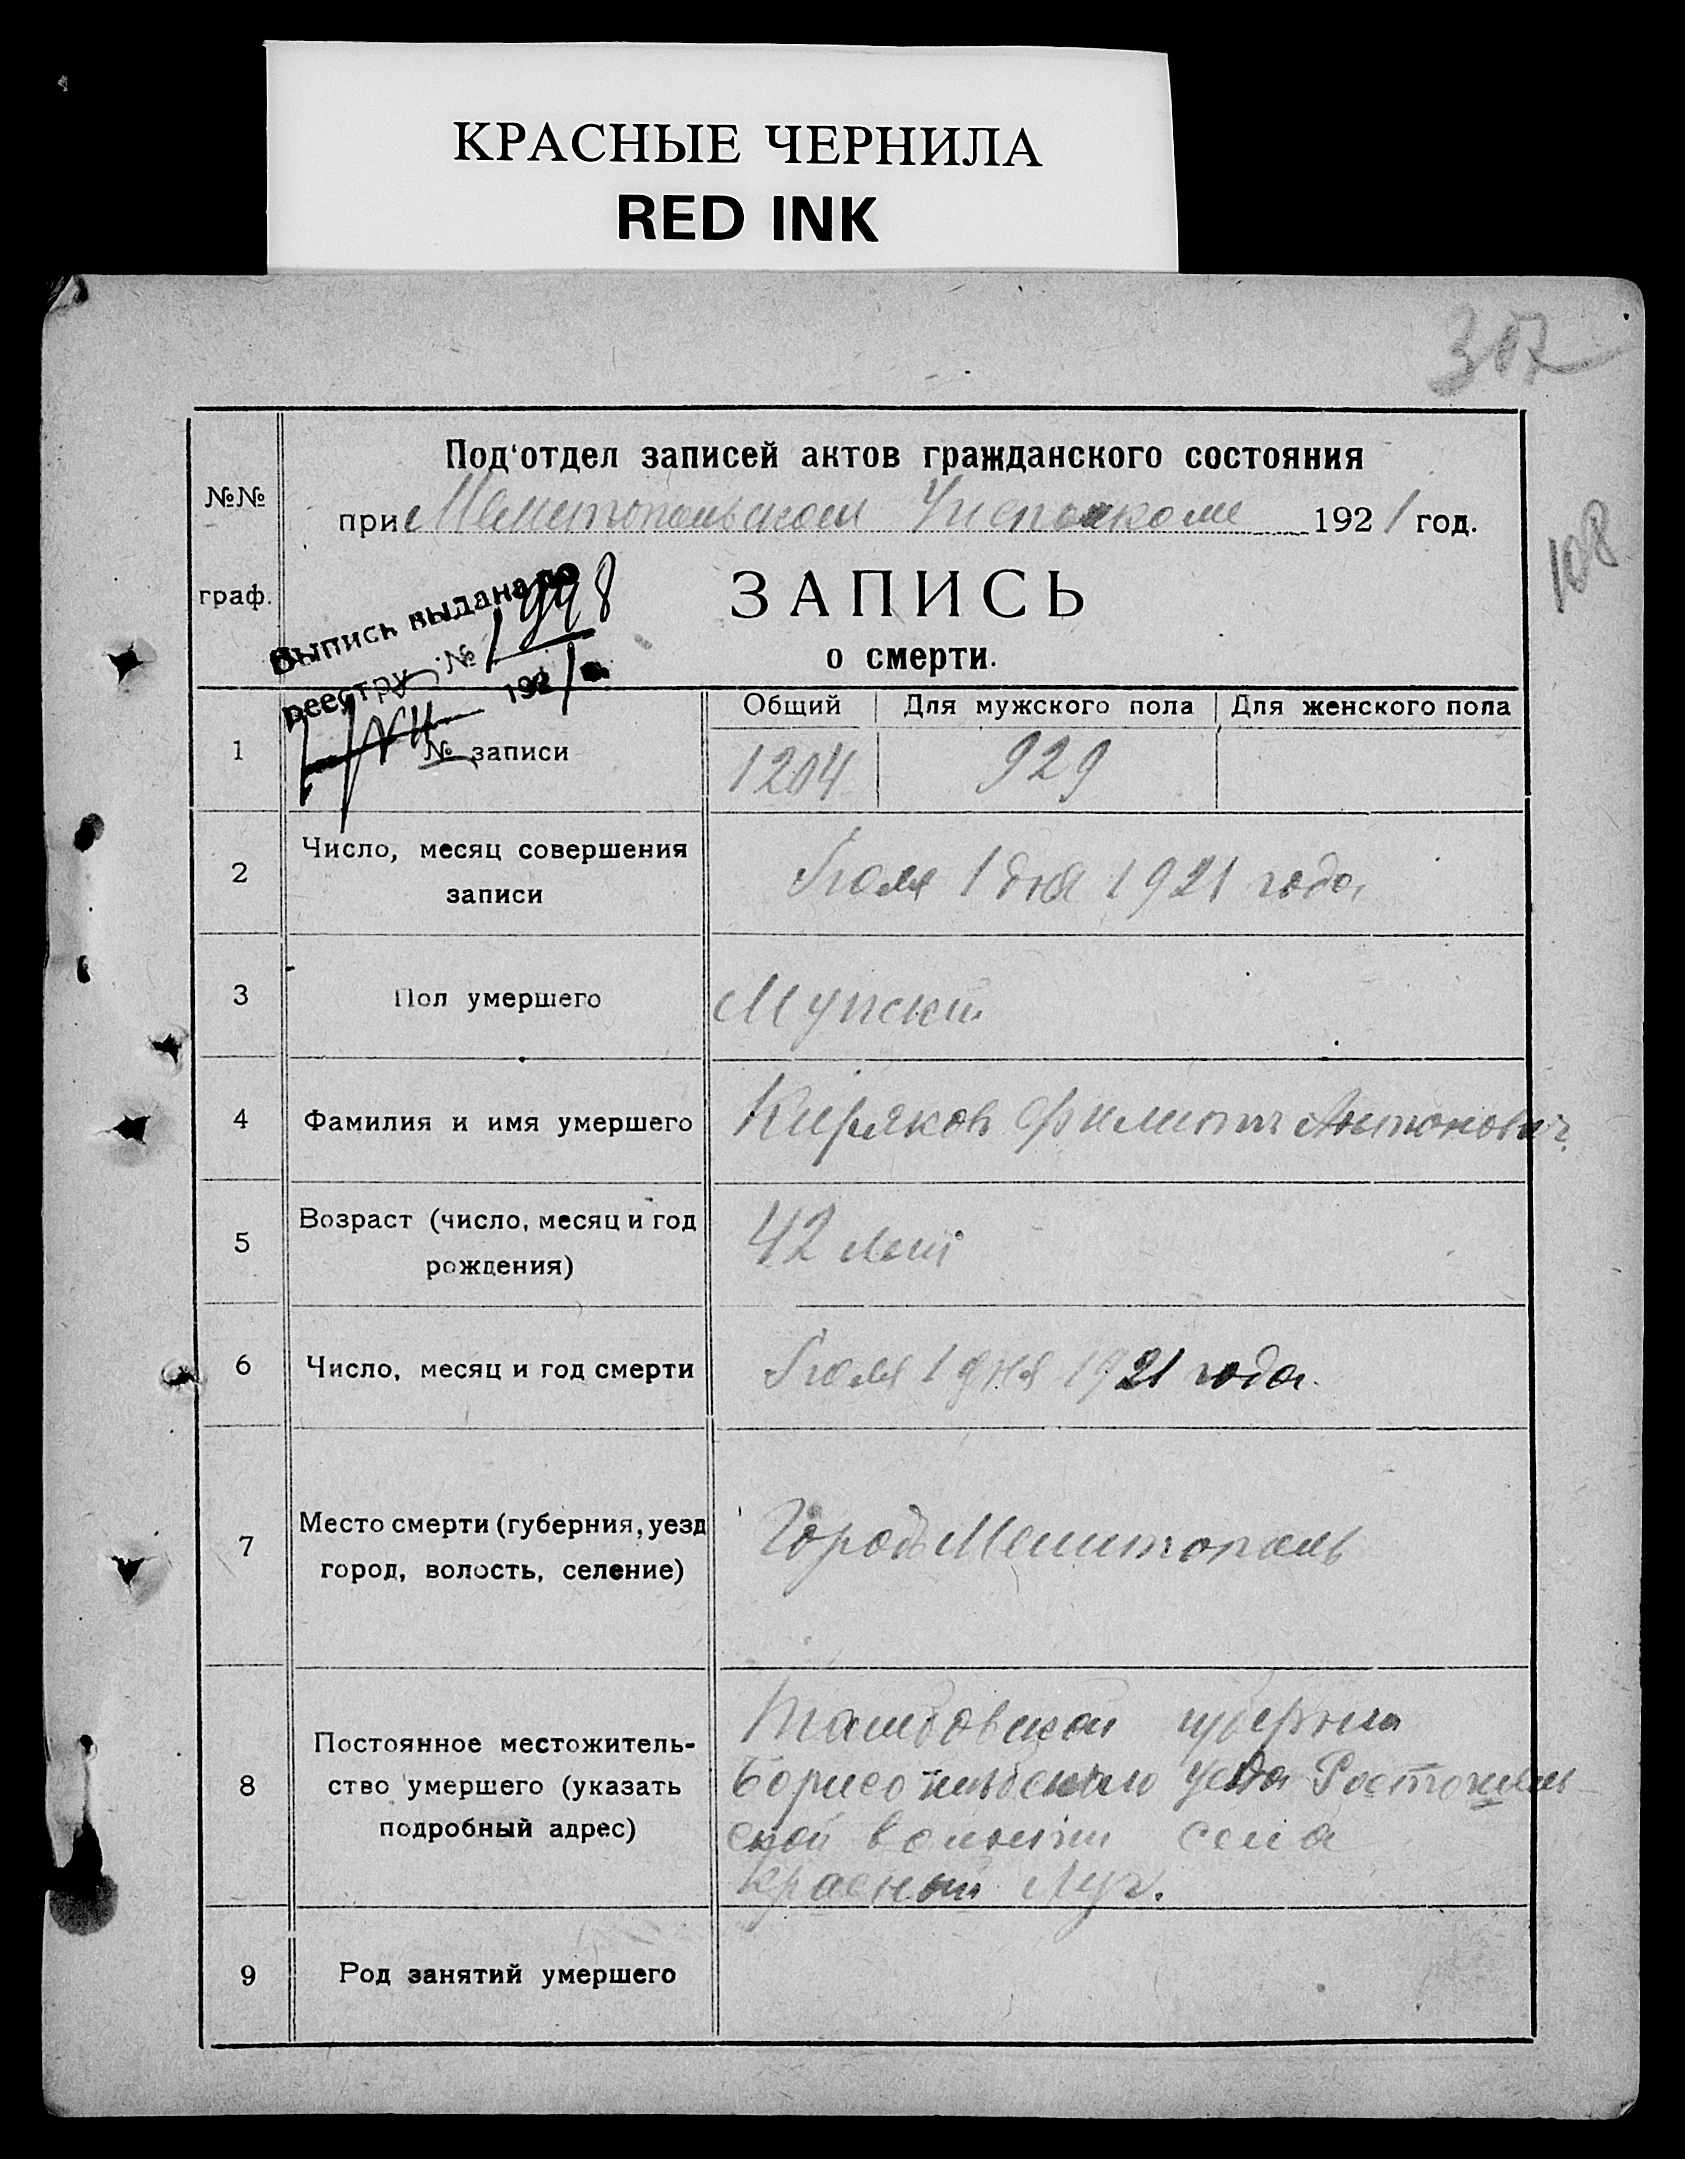 КРАСНЫЕ ЧЕРНИЛА
RED INK
307
108
Под'отдел записей актов гражданского состояния
№№
при Мелитопольском Исполкоме 1921 год.
граф.
Выпись выдана по
реестру № 1998
1921 г.
ЗАПИСЬ
о смерти.
Общий Для мужского пола Для женского пола
1 № записи 1204 929
2 Число, месяц совершения
записи
Июля 1 дня 1921 года
3 Пол умершего Мужской
4 Фамилия и имя умершего Киряков Филипп Антонович
5 Возраст (число, месяц и год
рождения)
42 лет
6 Число, месяц и год смерти Июля 1 дня 1921 года.
7 Место смерти (губерния, уезд
город, волость, селение)
Городъ Мелитополь
8 Постоянное местожитель-
ство умершего (указать
подробный адрес)
Тамбовской губерни
уезда
ской волости села
Красный Луч.
9 Род занятий умершего